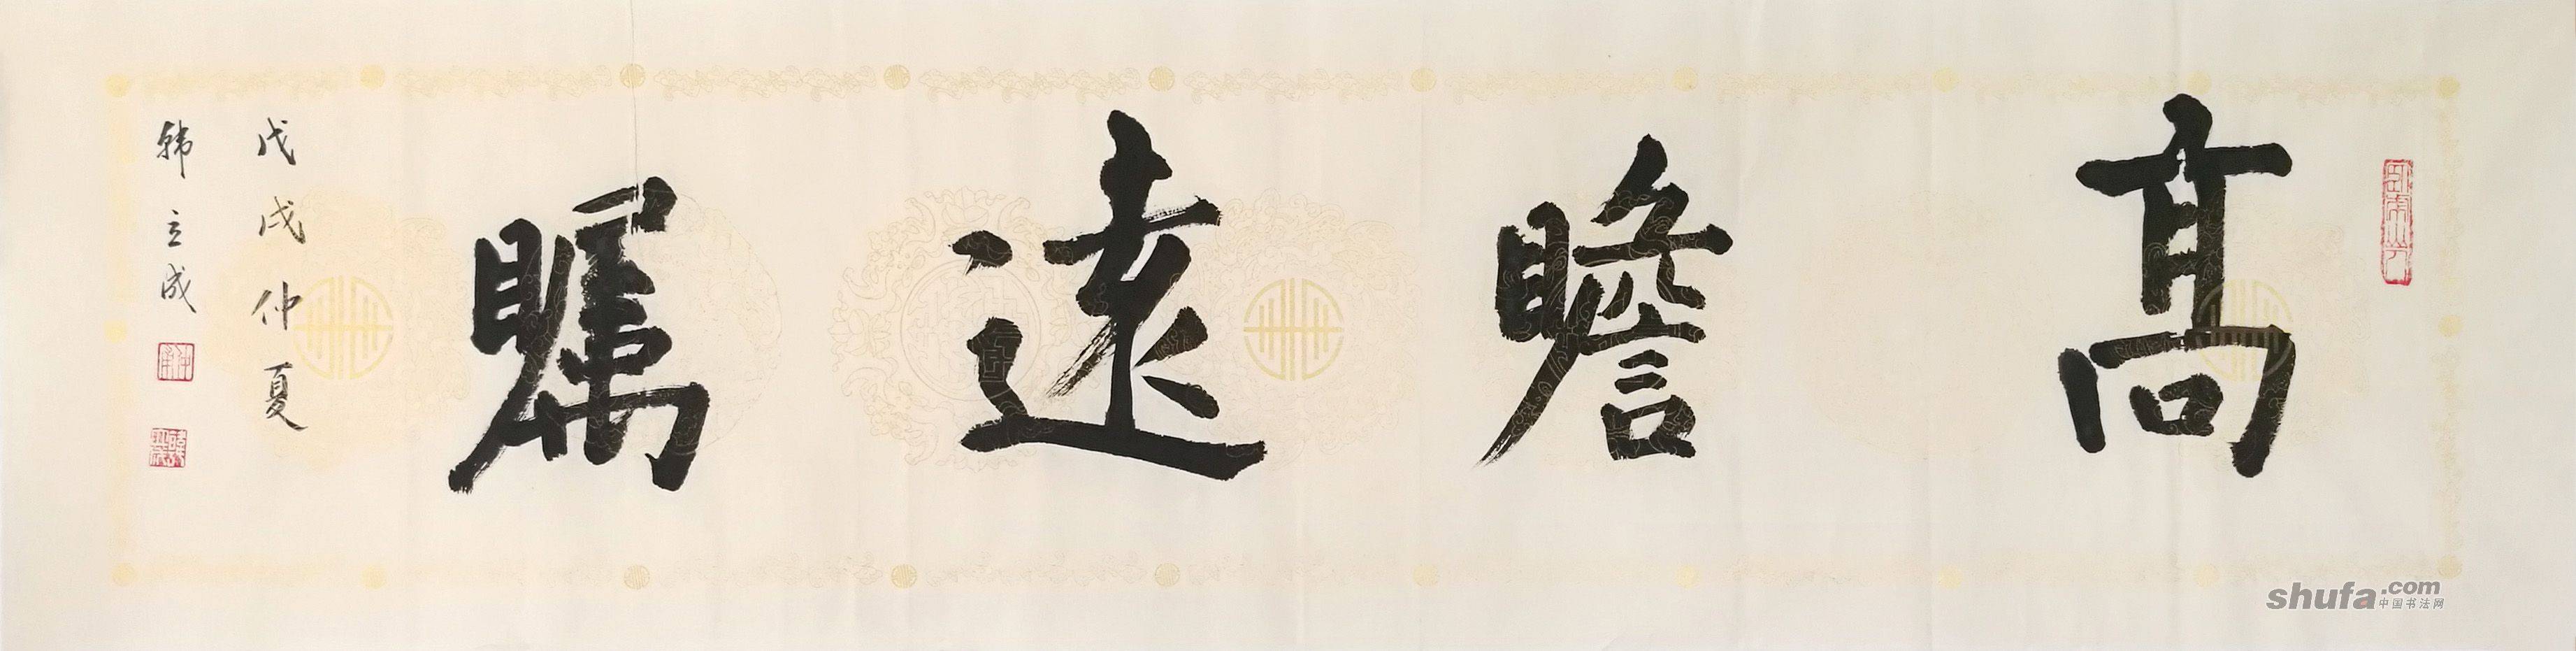 髙瞻遠瞩
戊戌仲夏
韩立成
shufa.com
中国书法网